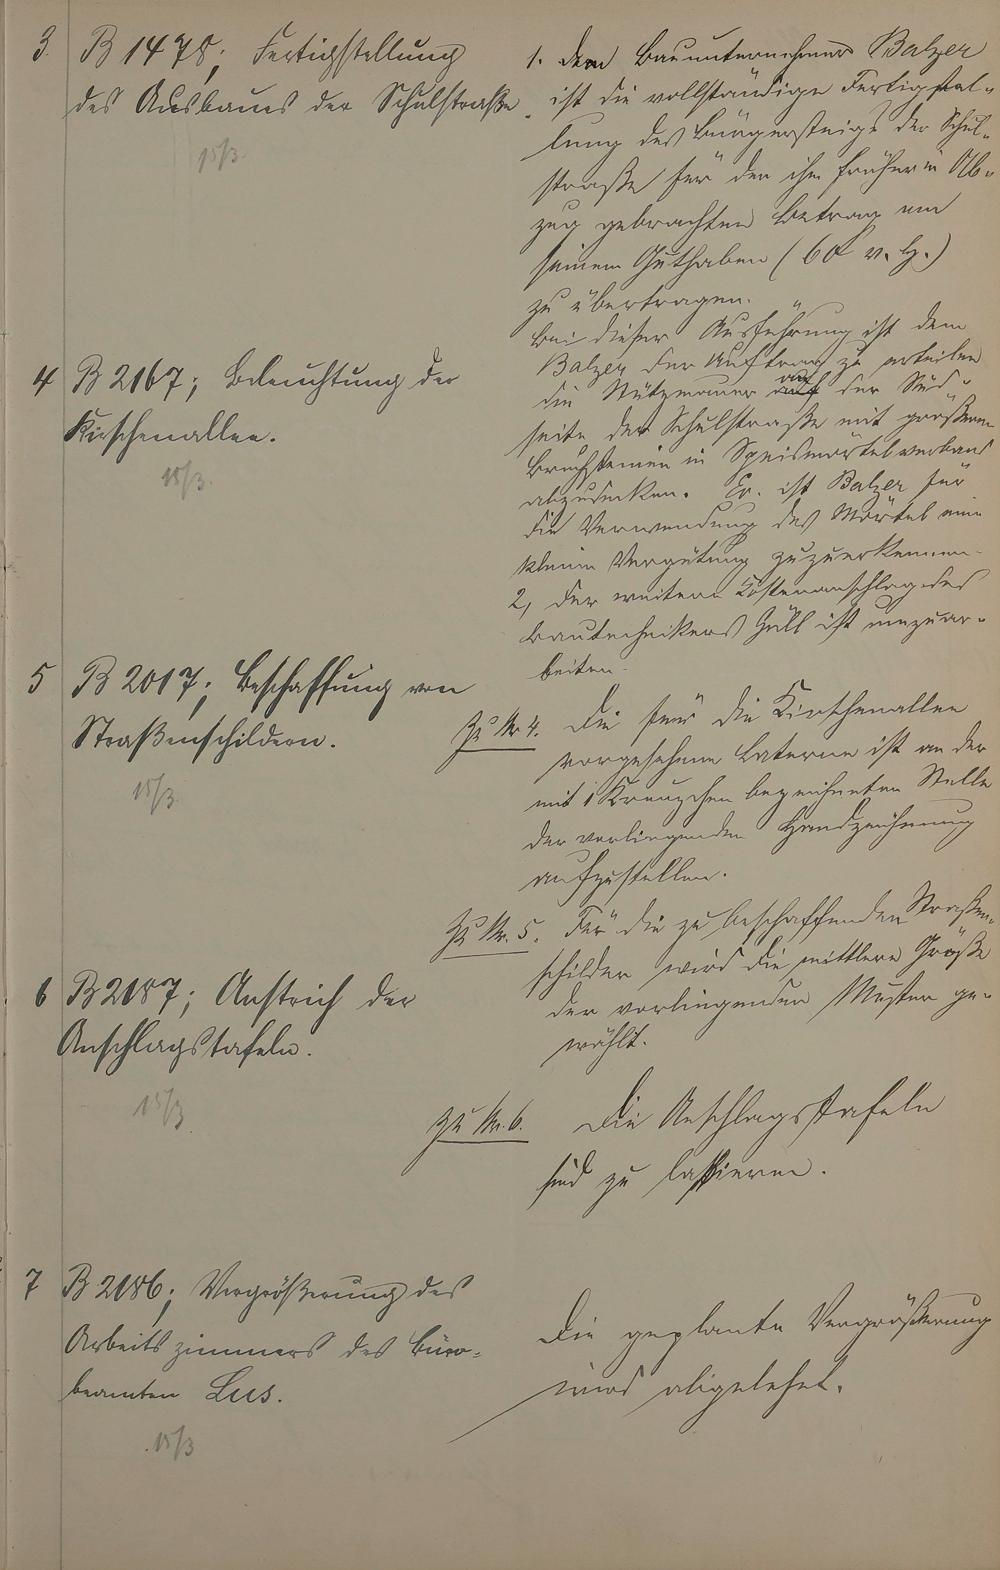 3. B 1478; Fertigstellung
des Ausbaues der Schulstraße.
15/3.
1. Dem Bauunternehmer Balzer
ist die vollständige Fertigstel-
lung des Bürgersteigs der Schul-
straße für den ihm früher in Ab-
zug gebrachten Betrag von
seinem Guthaben (60 v. H.)
zu übertragen.
Bei dieser Ausführung ist dem
Balzer der Auftrag zu erteilen
die Stützmauer auf der Süd-
seite der Schulstraße mit größeren
Bruchsteinen in Speismörtelverband
abzudecken. Er. ist Balzer für
die Verwendung des Mörtel eine
kleine Vergütung zuzuerkennen.
2, Der weitere Kostenanschlag des
Bautechnikers Gül ist umzuar-
beiten.
4 B 2167; Beleuchtung der
Kirschenallee.
15/3.
Zu Nr. 4. Die für die Kirschenallee
vorgesehene Laterne ist an der
mit 1 Kreuzchen bezeichneten Stelle
der vorliegenden Handzeichnung
aufzustellen.
5 B 2017; Beschaffung von
Straßenschildern.
15/3.
Zu Nr. 5. Für die zu beschaffenden Straßen-
schilder wird die mittlere Größe
der vorliegenden Muster ge-
wählt.
6 B 2187; Anstrich der
Anschlagstafeln.
15/3.
Zu Nr. 6. Die Anschlagstafeln
sind zu lassieren.
7 B 2186; Vergrößerung des
Arbeitszimmers des Büro-
beamten Lus.
15/3
Die geplante Vergrößerung
wird abgelehnt.